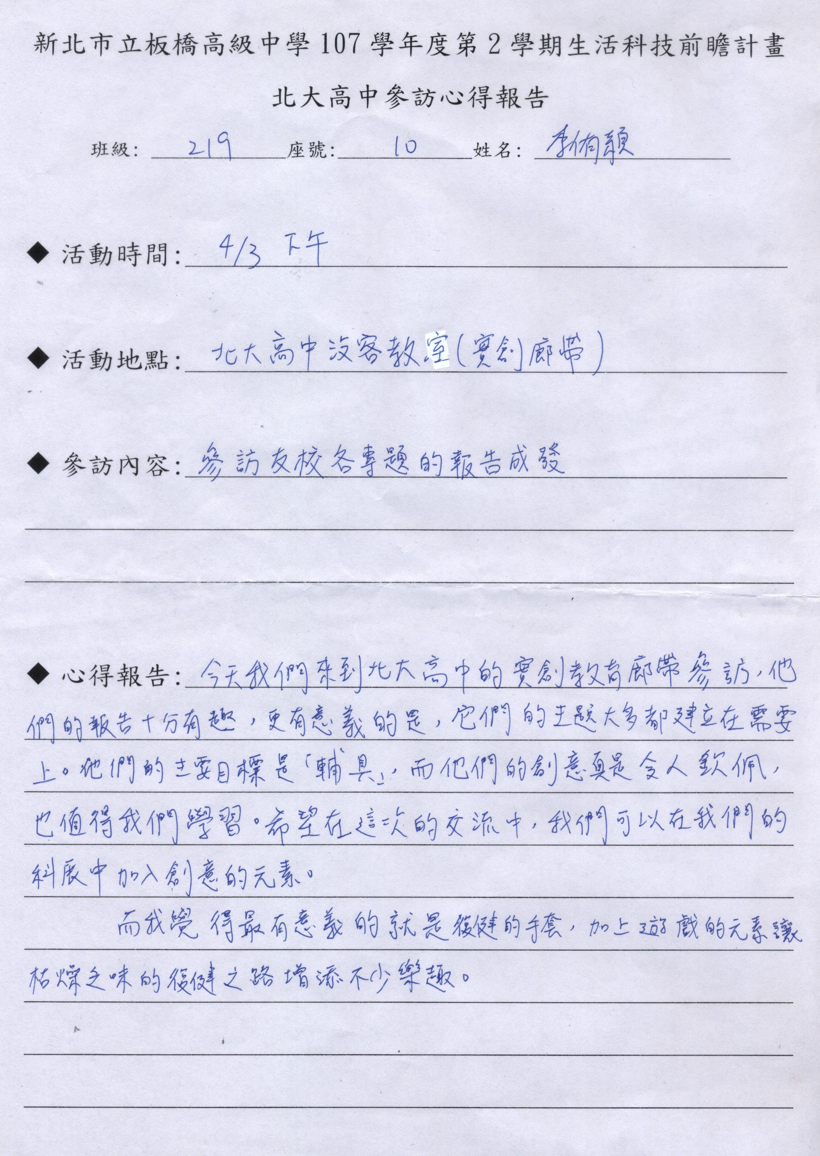 新北市立板橋高級中學 107 學年度第 2 學期生活科技前瞻計畫
北大高中參訪心得報告
班級: 219 座號: 10 姓名: 李侑穎
◆ 活動時間: 4/3 下午
◆ 活動地點: 北大高中沒客教室(實創廊帶)
◆ 參訪內容: 參訪友校各專題的報告成發
◆ 心得報告: 今天我們來到北大高中的實創教育廊帶參訪,他
們的報告十分有趣,更有意義的是,它們的主題大多都建立在需要
上。他們的主要目標是「輔具」,而他們的創意真是令人欽佩,
也值得我們學習。希望在這次的交流中,我們可以在我們的
科展中加入創意的元素。
而我覺得最有意義的就是復健的手套,加上遊戲的元素讓
枯燥乏味的復健之路增添不少樂趣。